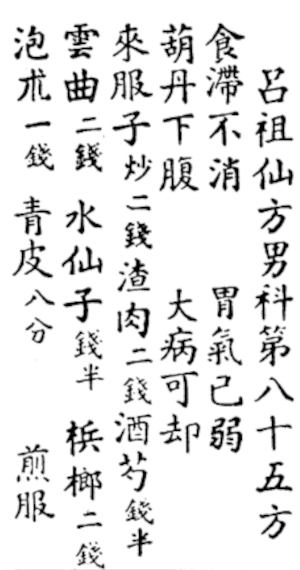 呂祖仙方男科第八十五方
食滯不消 胃氣已弱
葫丹下腹 大病可却
來服子炒二錢 渣肉二錢 酒芍錢半
雲曲二錢 水仙子錢半 梹榔二錢
泡朮一錢 青皮八分 煎服